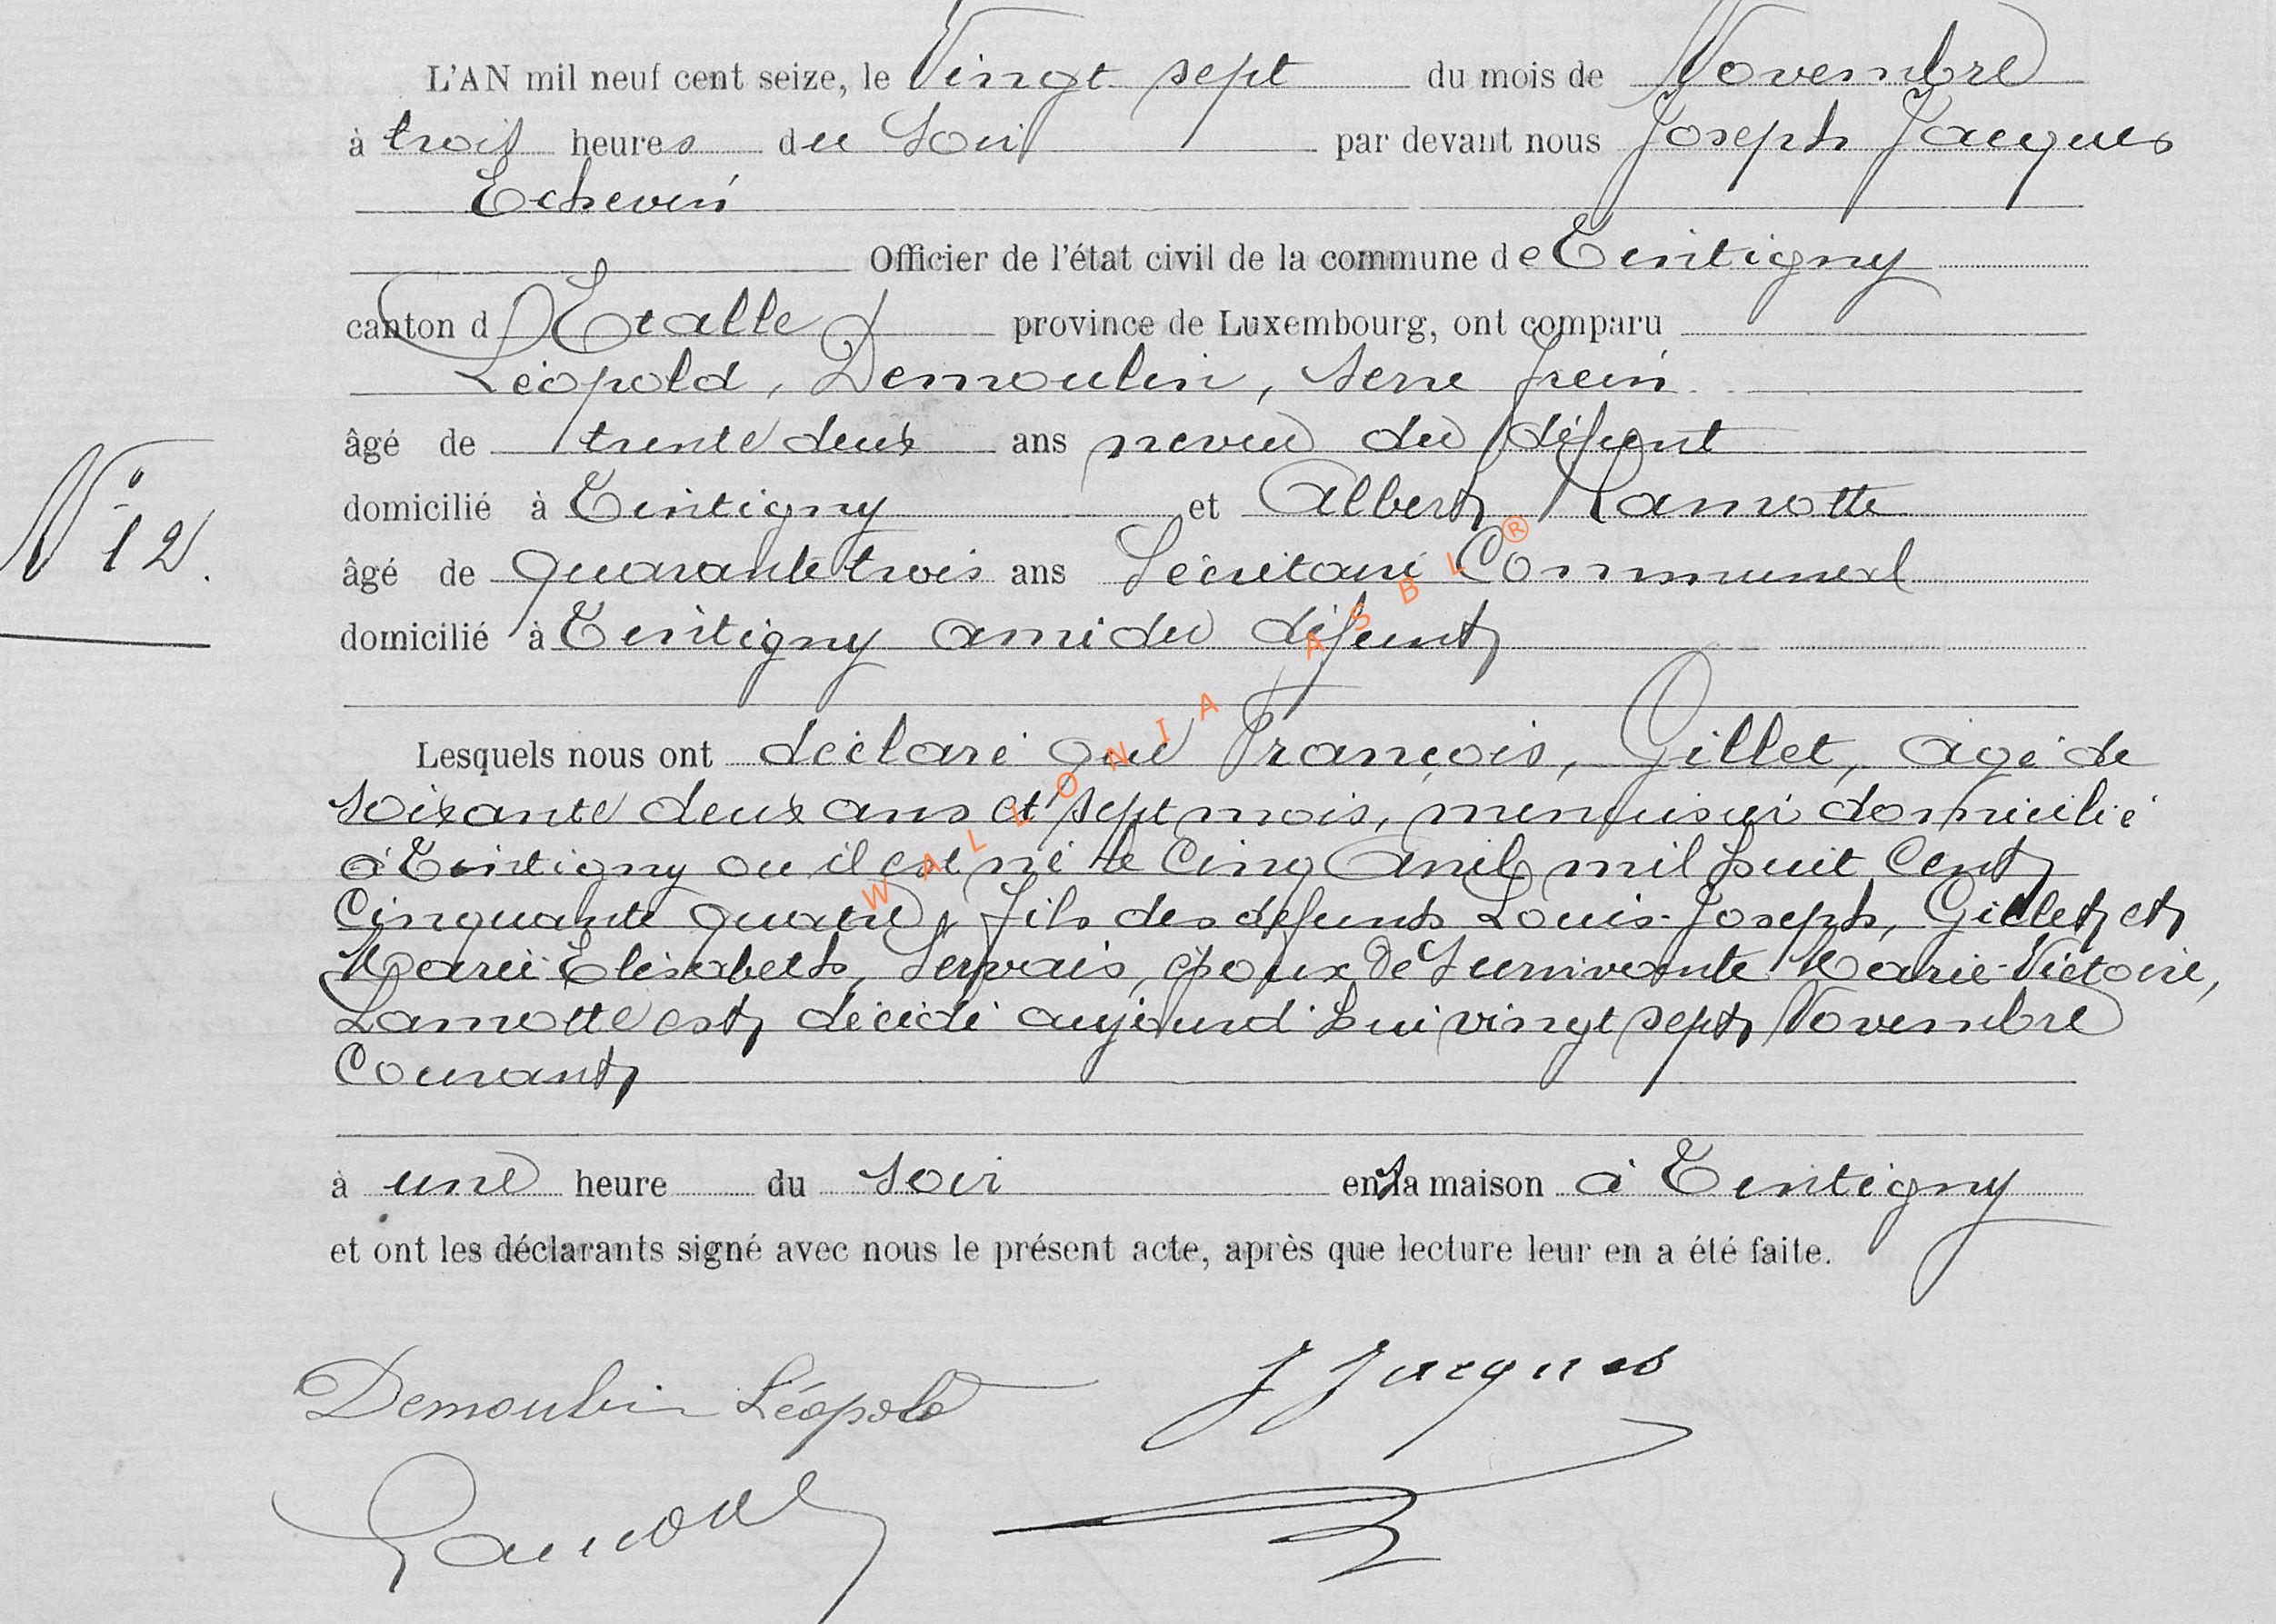 L'AN mil neuf cent seize, le Vingt sept du mois de Novembre
à trois heures du Soir par devant nous Joseph Jacques
Echevin
Officier de l'état civil de la commune de Tintigny
canton d'Etalle province de Luxembourg, ont comparu
Léopold, Demoulin, Serre frein
âgé de trente deux ans neveu du défunt
domicilié à Tintigny et Albert Lamotte
N° 12.
âgé de quarante trois ans Secrétaire Communal
domicilié à Tintigny ami du défunt
Lesquels nous ont déclaré que François, Gillet, âgé de
soixante deux ans et sept mois, menuisier domicilié
à Tintigny où il est né le Cinq Avril mil huit Cent
Cinquante quatre, fils des défunts Louis-Joseph, Gillet et
Marie Elisabeth, Servais, époux de Survivante Marie-Victoire,
Lamotte est décédé aujourd'hui vingt sept Novembre
Courant
à une heure du Soir en sa maison à Tintigny
et ont les déclarants signé avec nous le présent acte, après que lecture leur en a été faite.
Demoulin Léopold J Jacques
WALLONIA ASBL ®